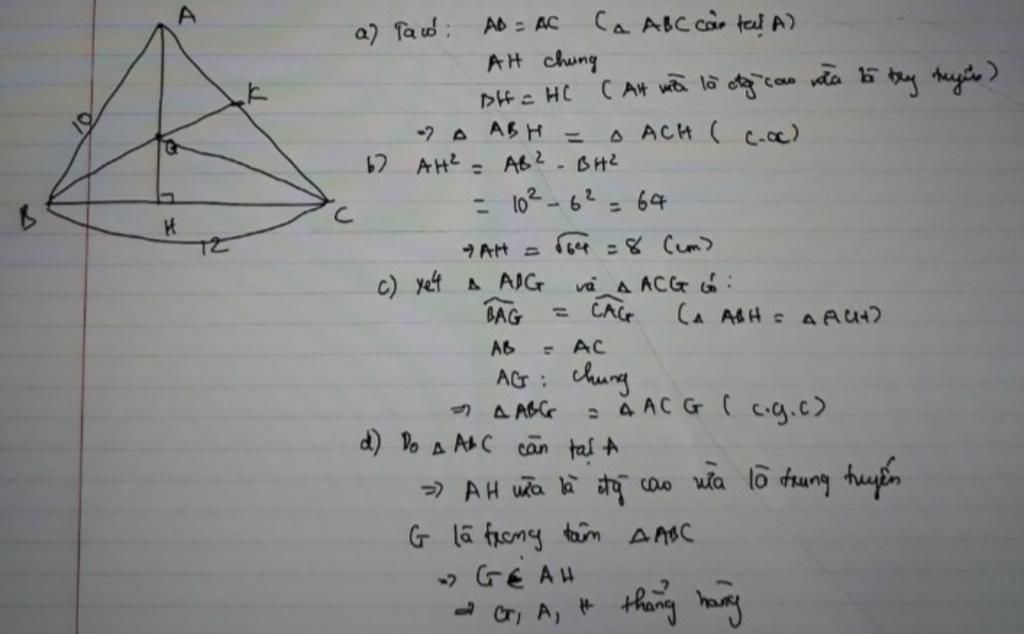 A
K
10
G
B
H
C
12
a) Ta có: AB = AC (△ ABC cân tại A)
AH chung
BH = HC (AH vừa là đg cao vừa là trg tuyến)
⇒ △ ABH = △ ACH (c.c.c)
b) AH² = AB² - BH²
= 10² - 6² = 64
⇒ AH = √64 = 8 (cm)
c) xét △ ABG và △ ACG có:
BAG = CAG (△ ABH = △ ACH)
AB = AC
AG: chung
⇒ △ ABG = △ ACG (c.g.c)
d) Do △ ABC cân tại A
⇒ AH vừa là đg cao vừa là trung tuyến
G là trọng tâm △ABC
⇒ G ∈ AH
⇒ G, A, H thẳng hàng